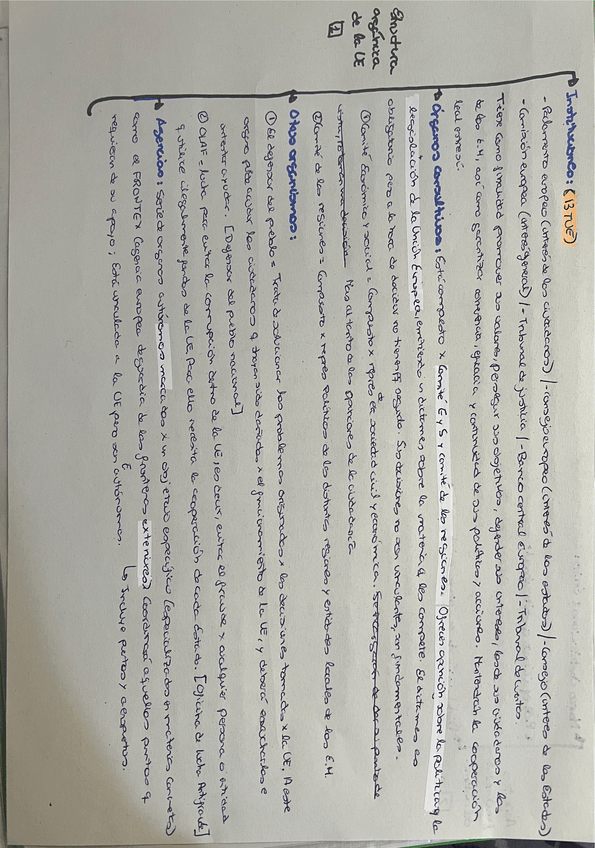 Estructura
orgánica
de la UE
1
Instituciones: (13 TUE)
- Parlamento europeo (interés de los ciudadanos) / - Consejo europeo (interés de los estados) / - Consejo (interés de los Estados)
- Comisión europea (interés general) / - Tribunal de justicia / - Banco central europeo / - Tribunal de cuentas.
Tiene como finalidad promover sus valores, perseguir sus objetivos, defender sus intereses, los de sus ciudadanos y los
de los E.M, así como garantizar coherencia, eficacia y continuidad de sus políticas y acciones. Mantendrán la cooperación
leal entre sí.
Órganos consultivos: Está compuesto x comité E y S y comité de las regiones. Ofrecen opinión sobre la política y la
legislación de la Unión Europea, emitiendo un dictamen, sobre la materia q les compete. El dictamen es
obligatorio pero a la hora de decidir no tienen q seguirlo. Sus decisiones no son vinculantes, son fundamentales.
① Comité Económico y social = Compuesto x repres de sociedad civil y económica.
② Comité de las regiones = Compuesto x repres políticos de las distintas regiones y entidades locales de los E.M.
Otros organismos:
① El defensor del pueblo = Trata d solucionar los problemas originados x las decisiones tomadas x la UE. A este
órgano pueden acudir los ciudadanos q hayan sido dañados x el funcionamiento de la UE, y deberá escucharlos e
intentar ayudar. [Defensor del pueblo nacional]
② OLAF = lucha para evitar la corrupción dentro de la UE, es decir, evitar el fraude x cualquier persona o entidad
q utilice ilegalmente fondos de la UE. Para ello necesita la cooperación de cada Estado. [Oficina de lucha Antifraude]
Agencias: Serie de órganos autónomos marcados x un objetivo específico (especializados en materias concretas)
como el FRONTEX (agencia europea de guardia de las fronteras exteriores) Coordinan a aquellos puntos q
requieran de su apoyo; Está vinculada a la UE pero son autónomos.
↳ Incluye puertos y aeropuertos.